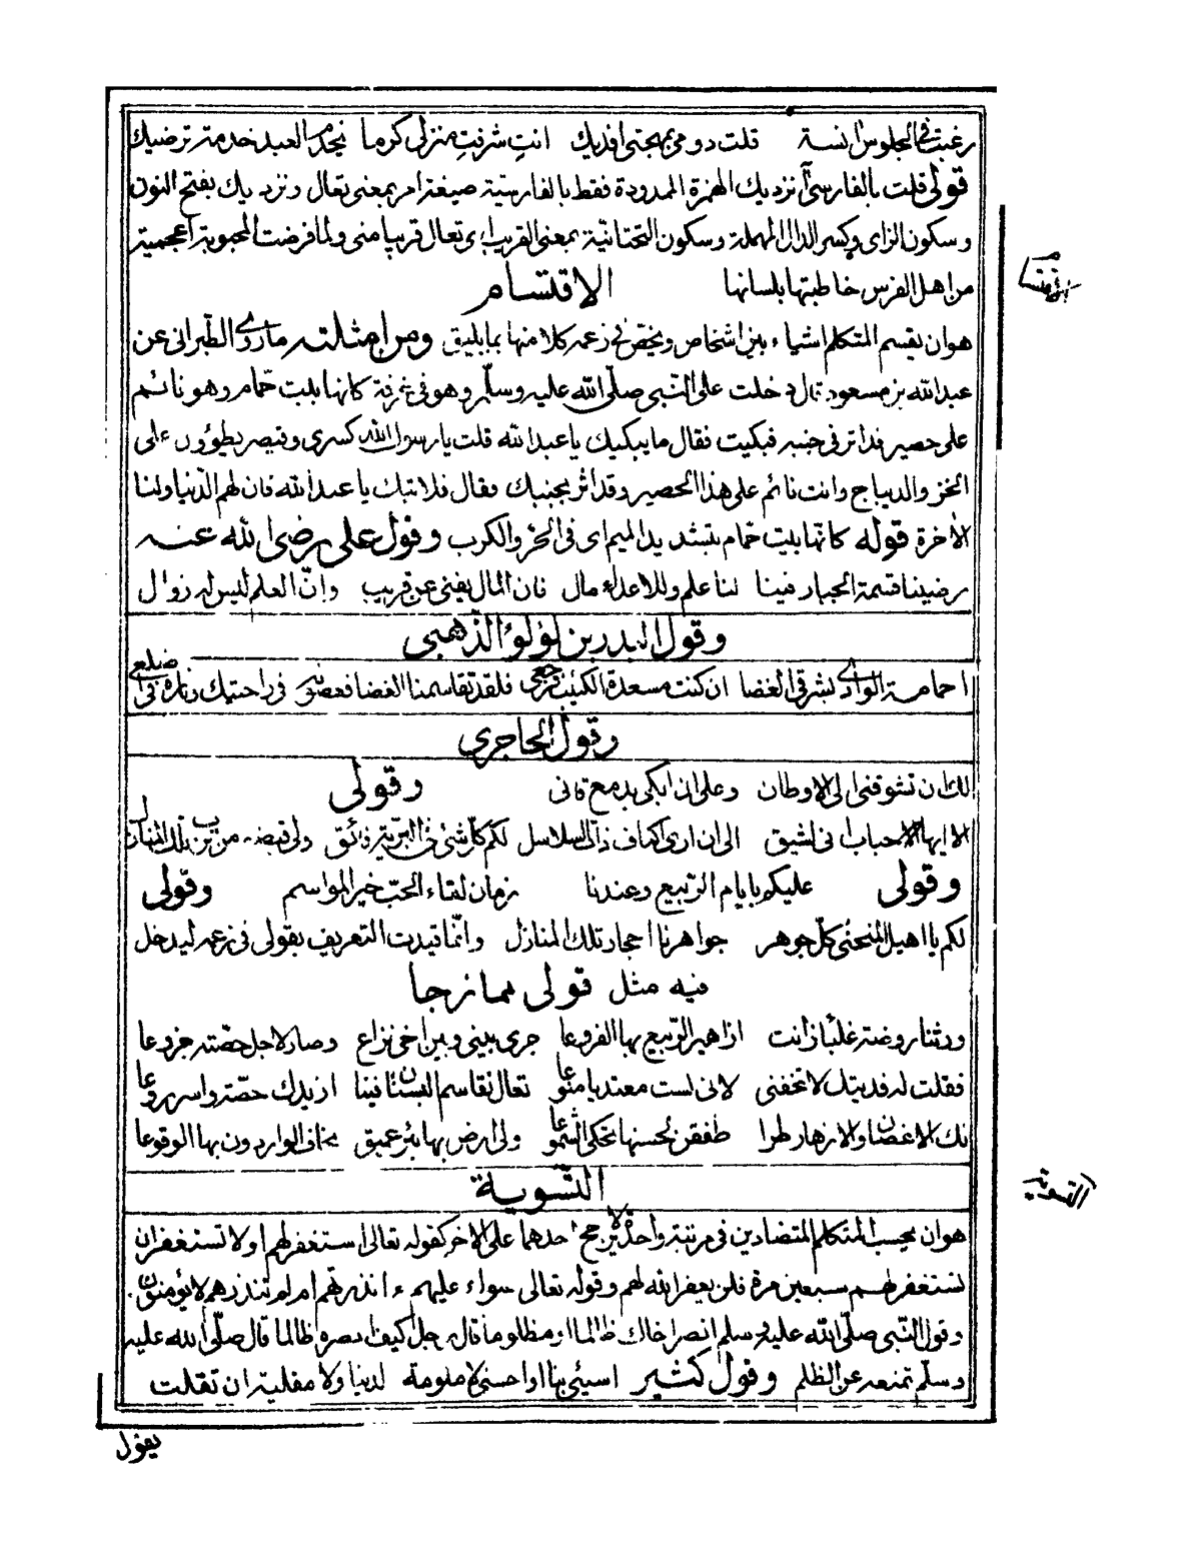 رغبت في الجلوس انسة قلت دومي بمهجتي افديك انتِ شرفتِ منزلي كرما يخدم العبد خدمة ترضيك
قولي قلت بالفارسي آ نزديك الهمزة الممدودة فقط بالفارسية صيغة امر بمعنى تعال ونزديك بفتح النون
وسكون الزاى وكسر الدال المهملة وسكون التحتانية بمعنى القريب اى تعال قريبا منى ولما فرضت المحبوبة اعجمية
من اهل الفرس خاطبتها بلسانها الاقتسام
هو ان يقسم المتكلم اشياء بين اشخاص ويخص في زعمه كلا منها بما يليق ومن امثلته ما روى الطبرانى عن
عبد الله بن مسعود قال دخلت على النبى صلّى الله عليه وسلّم وهو فى غرفة كانها بيت حمّام وهو نائم
على حصير قد اثر فى جنبه فبكيت فقال ما يبكيك يا عبد الله قلت يا رسول الله كسرى وقيصر يطؤون على
الخز والديباج وانت نائم على هذا الحصير وقد اثر بجنبك فقال فلا تبك يا عبد الله فان لهم الدّنيا ولنا
الاخرة قوله كانها بيت حمّام بتشديد الميم اى فى الحر والكرب وقول على رضى الله عنه
رضينا قسمة الجبار فينا لنا علم وللاعداء مال فان المال يفنى عن قريب وانّ العلم ليس له زوال
وقول البدر بن لؤلؤ الذّهبى
احمامة الوادى بشرقى الغضا ان كنت مسعدة الكئيب فرجعى فلقد تقاسمنا الغضا فغصونه فى راحتيك وناره فى اضلعى
وقول الحاجرى
لك ان تشوقنى الى الاوطان وعلى ان ابكى بدمع قانى وقولى
الا ايها الاحباب انى لشيق الى ان ارى اكناف ذات السلاسل لكم كل شئ فى البريّة رائق ولى قبضة من ترب تلك المنازل
وقولى عليكم بايام الرّبيع وعندنا زمان لقاء الحبّ خير المواسم وقولى
لكم يا اهيل المنحنى كل جوهر جواهرنا احجار تلك المنازل وانّما قيدت التعريف بقولى فى زعمه ليدخل
فيه مثل قولى ممازحا
ورثنا روضة غلبا زانت ازاهير الرّبيع بها الفروعا جرى بينى وبين اخى نزاع وصار لاجل حصّته جزوعا
فقلت له فديتك لا تخفنى لانى لست معتديا منوعا تعال نقاسم البستان فينا ازيدك حصّة واسر روعا
فلك الاغصان والازهار طرا طفقن لحسنها تحكى الشموعا ولى ارض بها بئر عميق يخاف الواردون بها الوقوعا
التّسوية
هو ان يحسب المتكلم المتضادين فى مرتبة واحدة لا يرجح احدهما على الاخر كقوله تعالى استغفر لهم او لا تستغفر ان
تستغفر لهم سبعين مرة فلن يغفر الله لهم وقوله تعالى سواء عليهم ءانذرتهم ام لم تنذرهم لا يؤمنون
وقول النّبى صلّى الله عليه وسلم انصر اخاك ظالما او مظلوما قال رجل كيف انصره ظالما قال صلّى الله عليه
وسلّم تمنعه عن الظلم وقول كثير اسيئى بنا او احسنى لا ملومة لدينا ولا مقلية ان تقلت
يقول
الاقتسام
التسوية